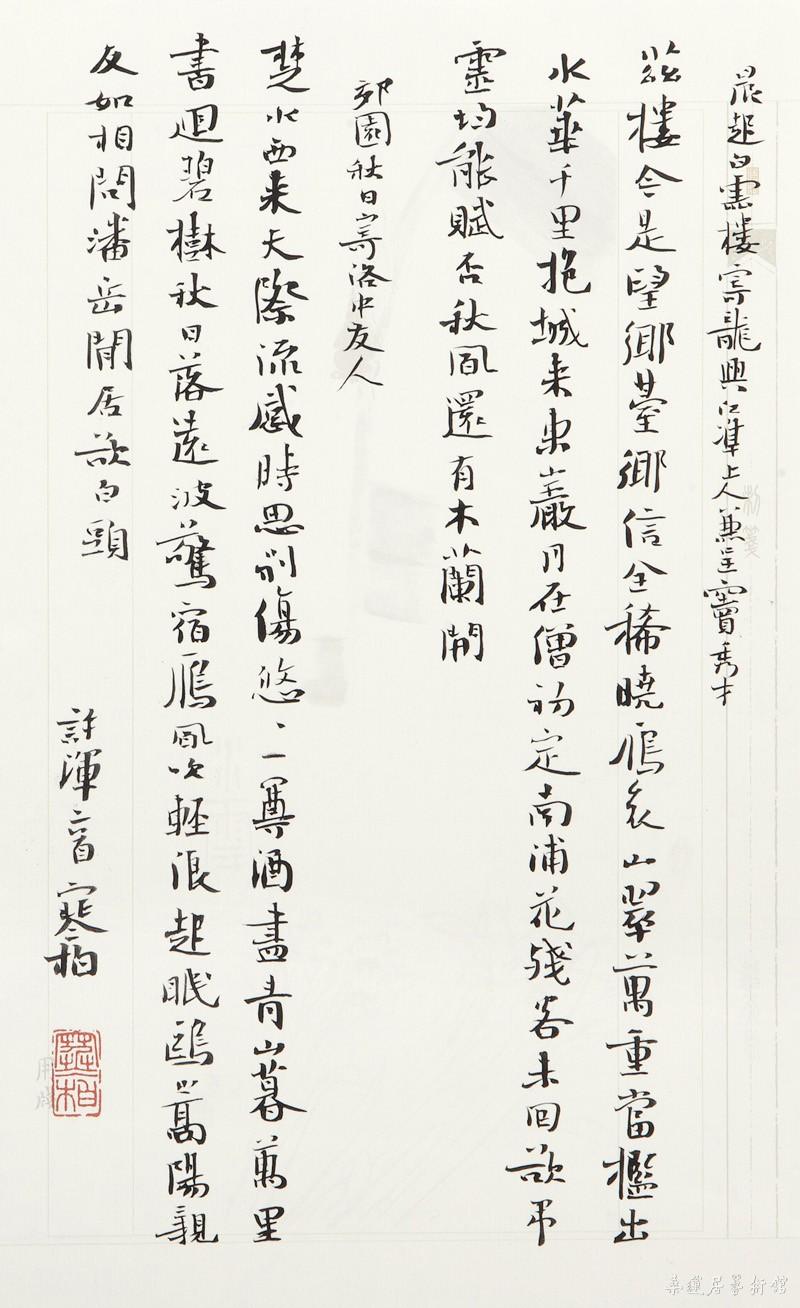 晨起白雲樓寄龍興江準上人兼呈竇秀才
茲樓今是望鄉臺鄉信全稀曉雁哀山翠萬重當檻出
水華千里抱城來東巖月在僧初定南浦花殘客未回欲弔
靈均能賦否秋風還有木蘭開
郊園秋日寄洛中友人
楚水西來天際流感時思別傷悠、一尊酒盡青山暮萬里
書迴碧樹秋日落遠波驚宿雁風吹輕浪起眠鷗嵩陽親
友如相問潘岳閒居欲白頭
許渾二首 寒柏
寒柏